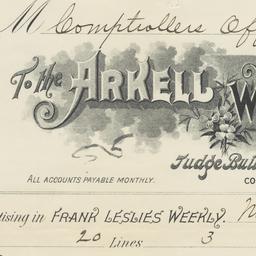 M Comptrollers Of
To the ARKELL W
25
Judge Buil
ALL ACCOUNTS PAYABLE MONTHLY.
CO
tising in FRANK LESLIES WEEKLY.
20 Lines 3